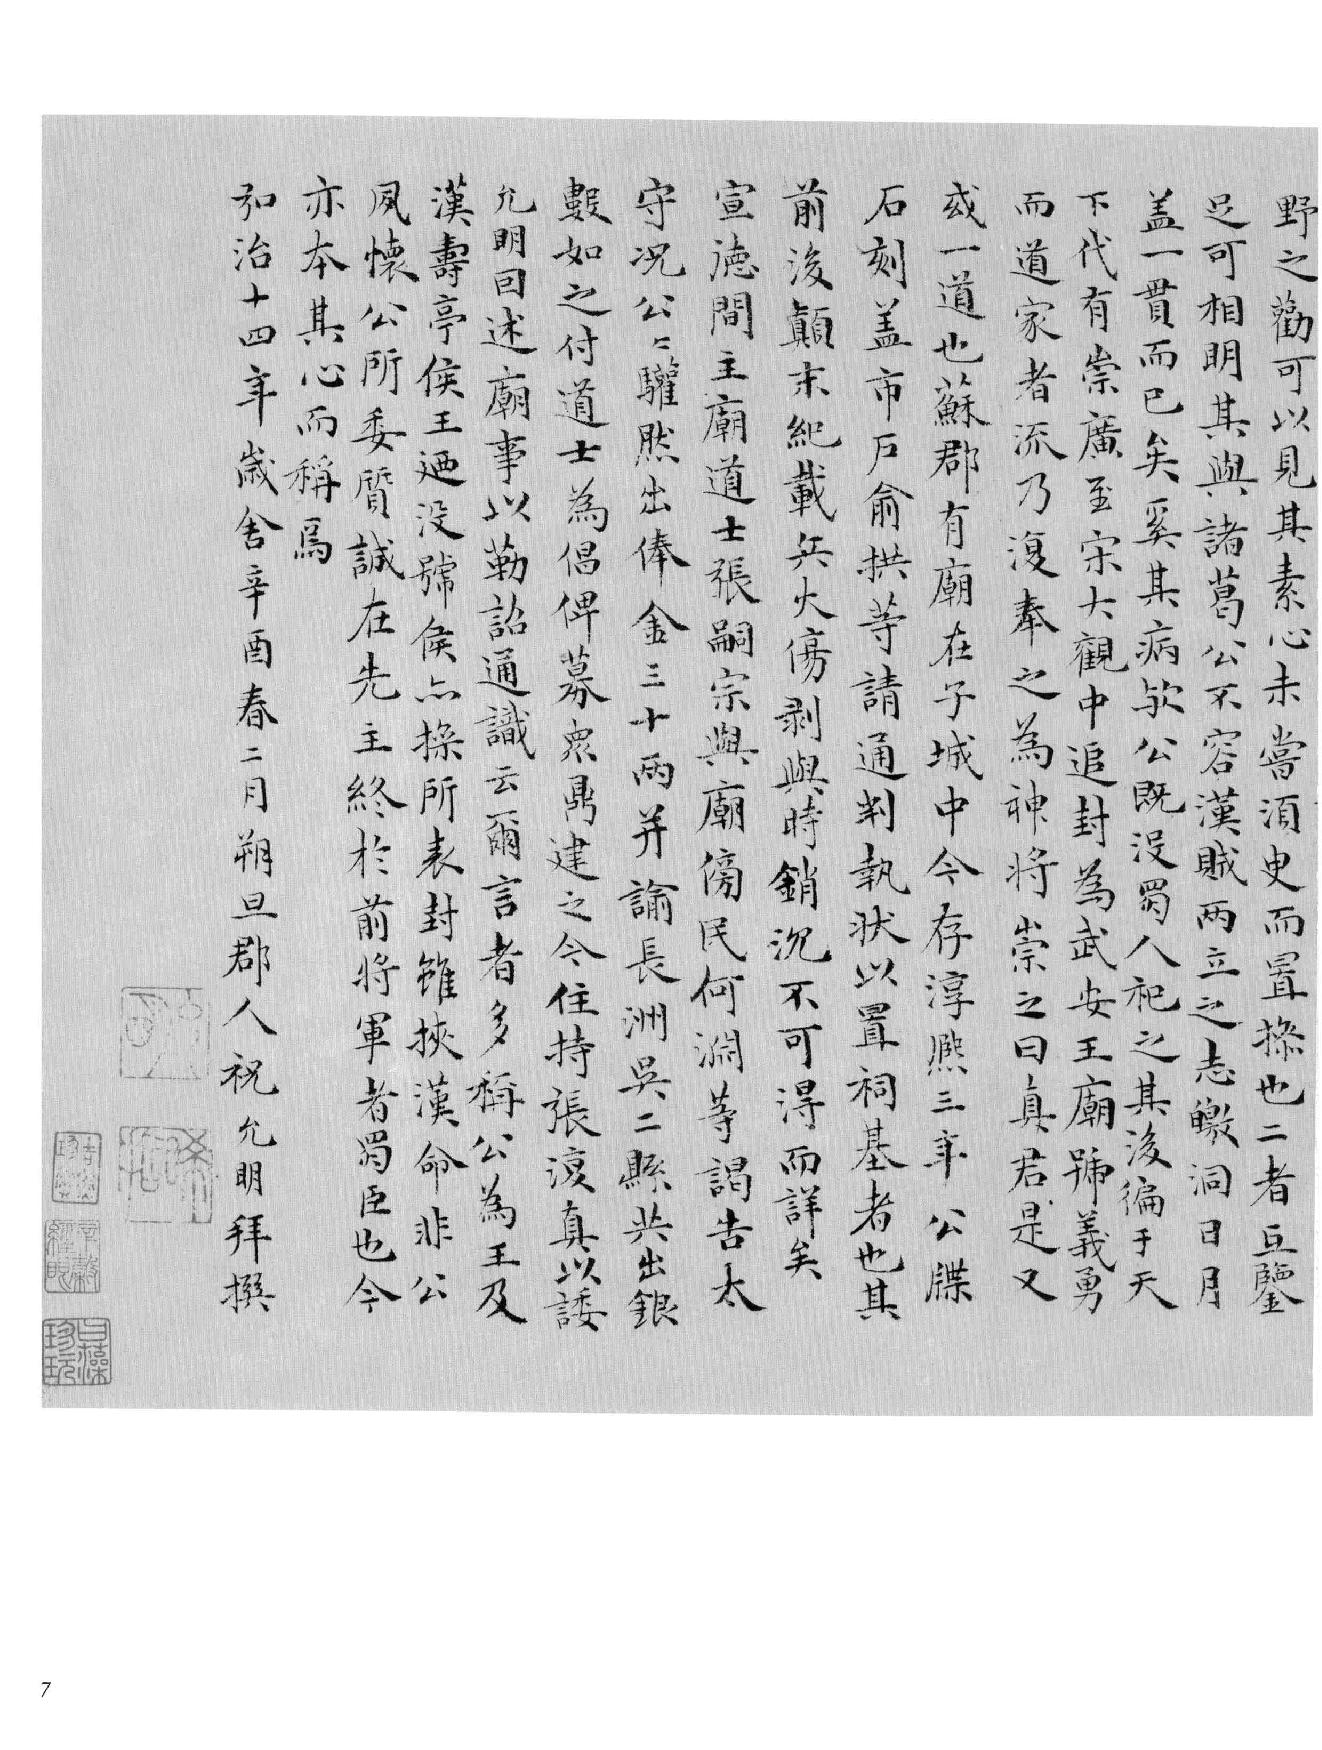 野之勸可以見其素心未嘗須臾而置操也二者互鑒
足可相明其與諸葛公不容漢賊兩立之志皦洞日月
盖一貫而已矣奚其病欤公既没蜀人祀之其後徧于天
下代有崇廣至宋大觀中追封為武安王廟號義勇
而道家者流乃復奉之為神將崇之曰真君是又
或一道也蘇郡有廟在子城中今存淳熙三年公牒
石刻盖市戶俞拱等請通判執狀以置祠基者也其
前後顛末紀載兵火傷剥與時銷沉不可得而詳矣
宣德間主廟道士張嗣宗與廟傍民何淵等謁告太
守况公〻驩然出俸金三十兩并諭長洲吳二縣共出銀
數如之付道士為倡俾募衆鼎建之今住持張復真以諉
允明回述廟事以勒詔通識云爾言者多稱公為王及
漢壽亭侯王迺没號侯亦操所表封雖挾漢命非公
夙懷公所委質誠在先主終於前將軍者蜀臣也今
亦本其心而稱焉
弘治十四年歲舍辛酉春二月朔旦郡人祝允明拜撰
7